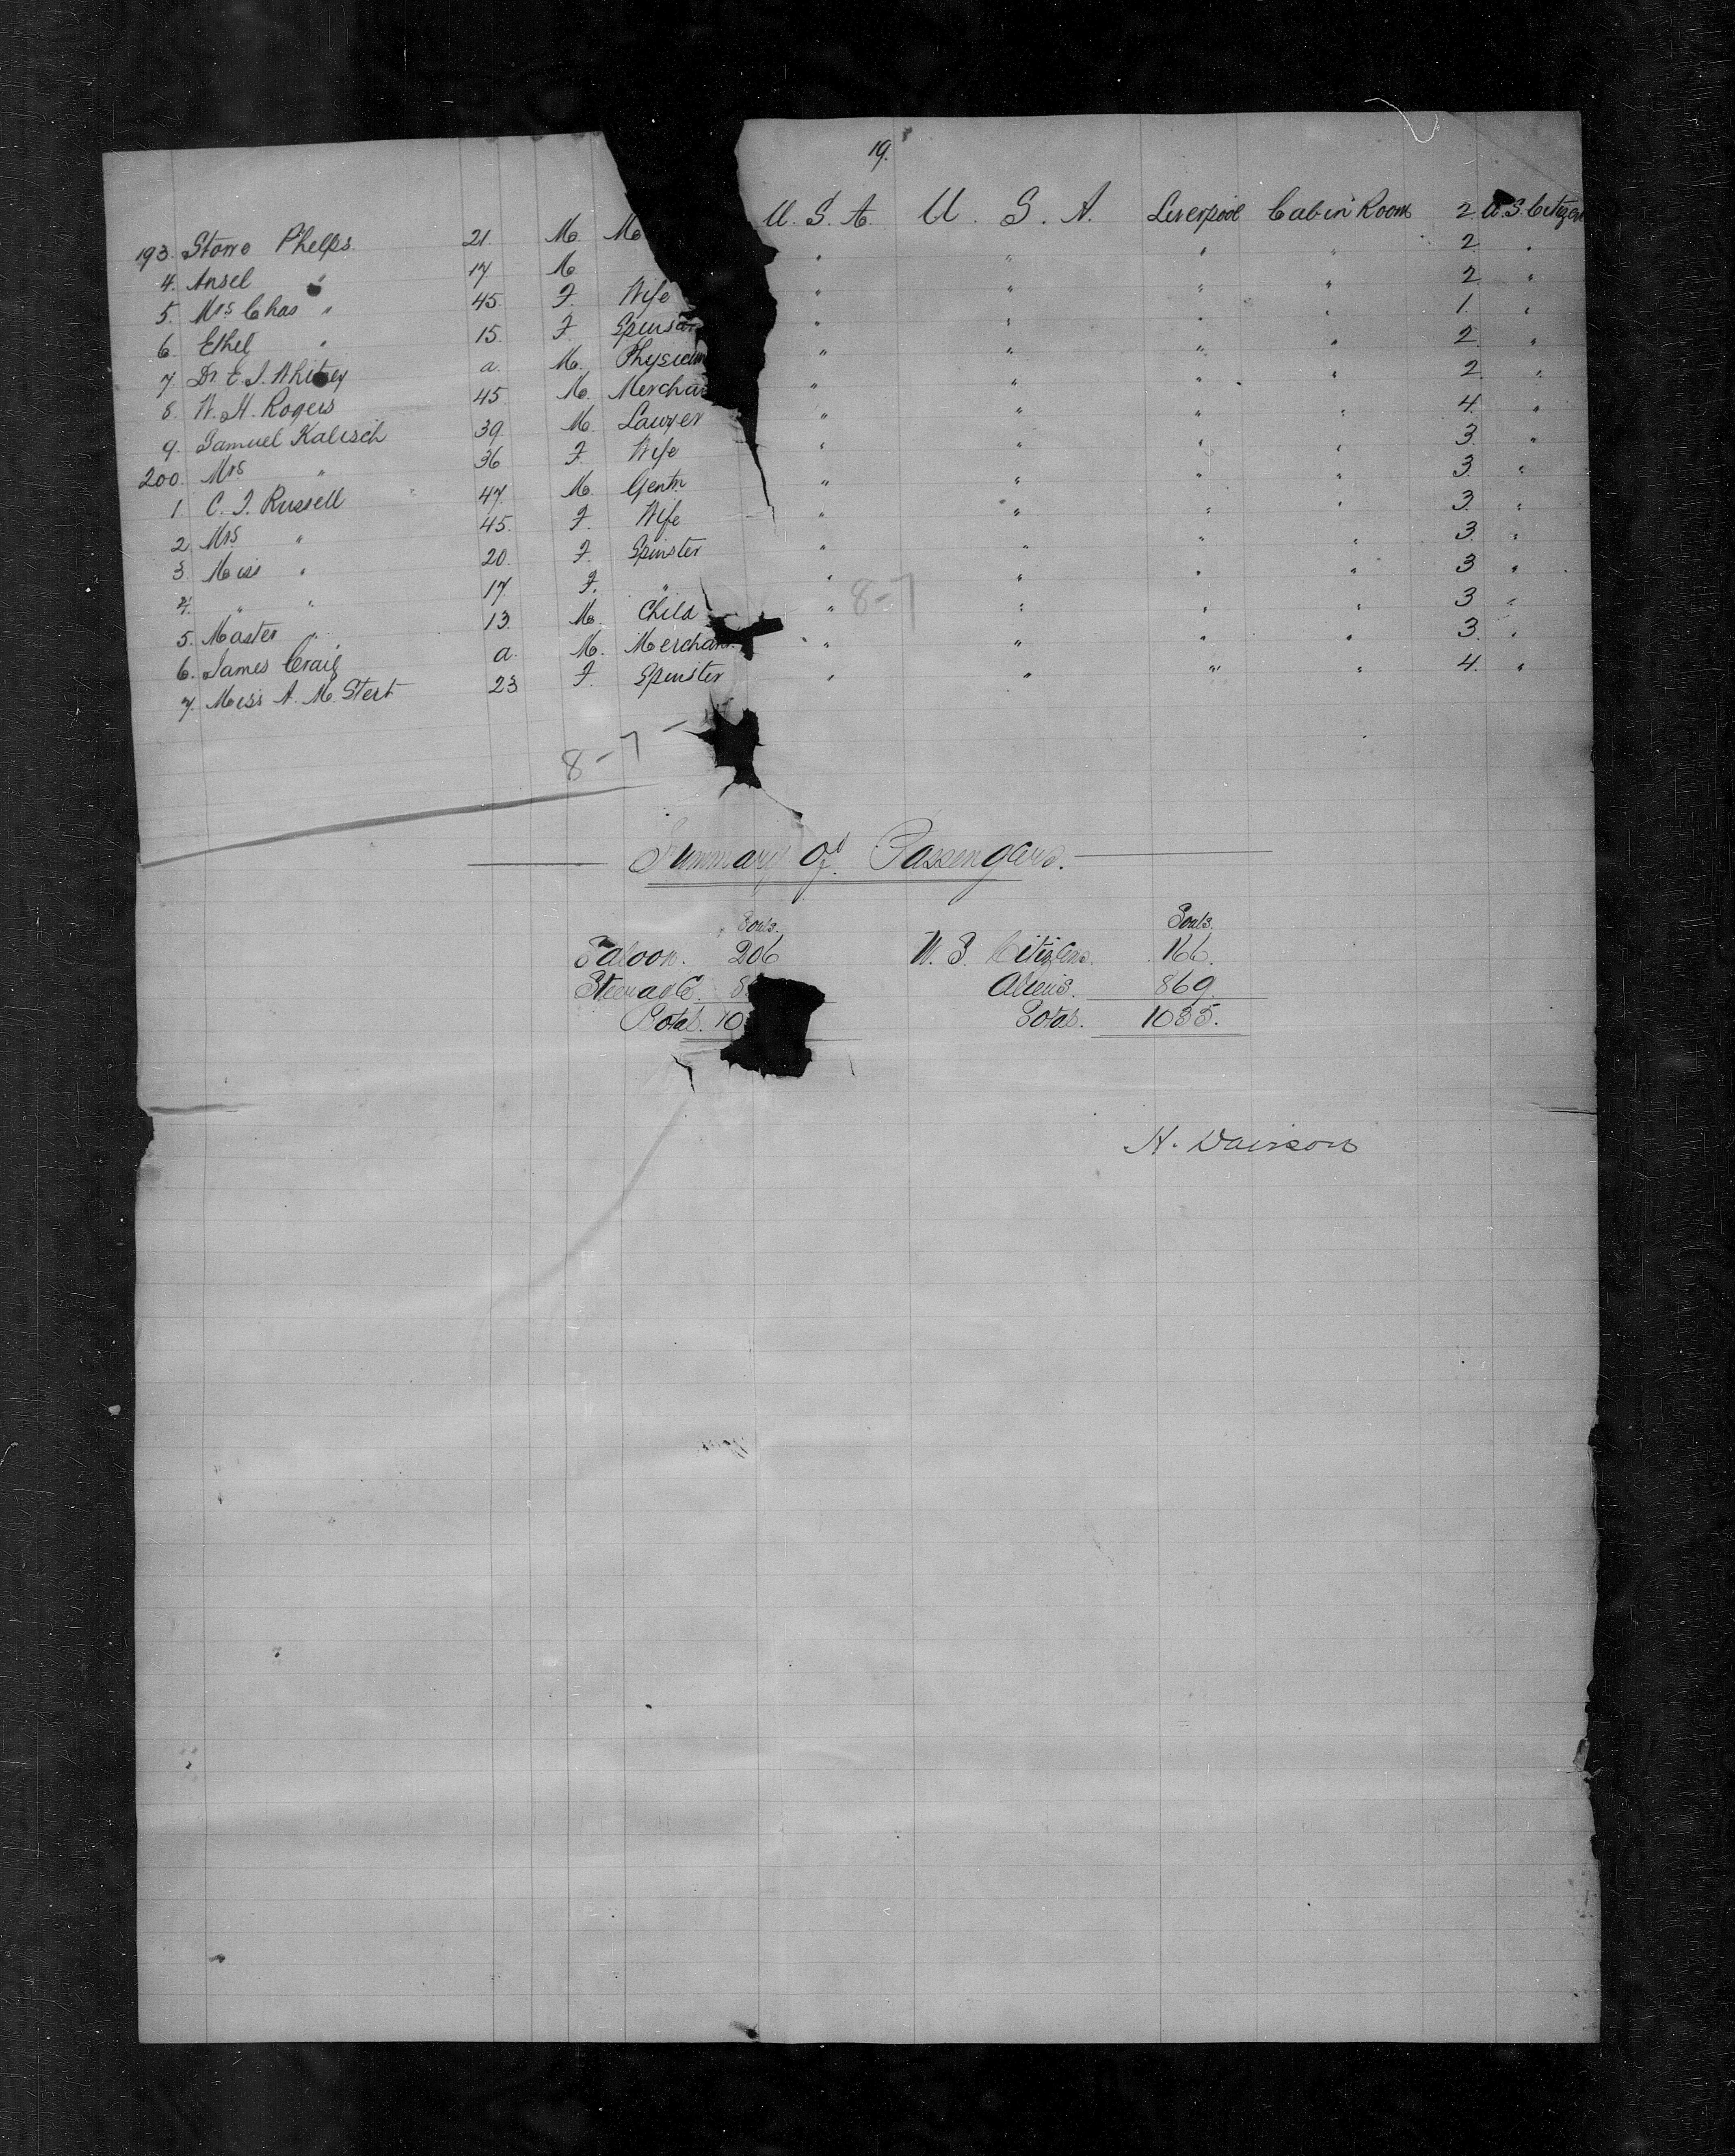 19.
193. Stowe Phelps. 21. M. M U. S. A. U. S. A. Liverpool Cabin Room 2. U.S. Citizen
4. Ansel " 17 M " " " " 2. "
5. Mrs Chas " 45. F. Wife " " " " 2. "
6. Ethel " 15. F. " " " " 1. "
7. Dr. E. J. Whitney a. M. Physician " " " " 2. "
8. W. H. Rogers 45. M. Merchan " " " " 2. "
9. Samuel Kalisch 39. M. Lawyer " " " " 4. "
200. Mrs " 36 F. Wife " " " " 3. "
1. C. F. Russell 47. M. Gentn " " " " 3. "
2. Mrs " 45. F. Wife " " " " 3. "
3. Miss " 20. F. Spinster " " " " 3. "
4. " " 17. F. " " " " " 3. "
5. Master " 13. M. Child " " " " 3 "
6. James Craig a. M. Merchant " " " " 3. "
7. Miss A. M. Stert 23 F. Spinster " " " " 4. "
8-7
8-7
Summary of Passengers.
Souls. Souls.
Saloon. 206 U. S. Citizens. 166.
Steerage 8 Aliens. 869.
Total. 10 Total. 1035.
H. Davison